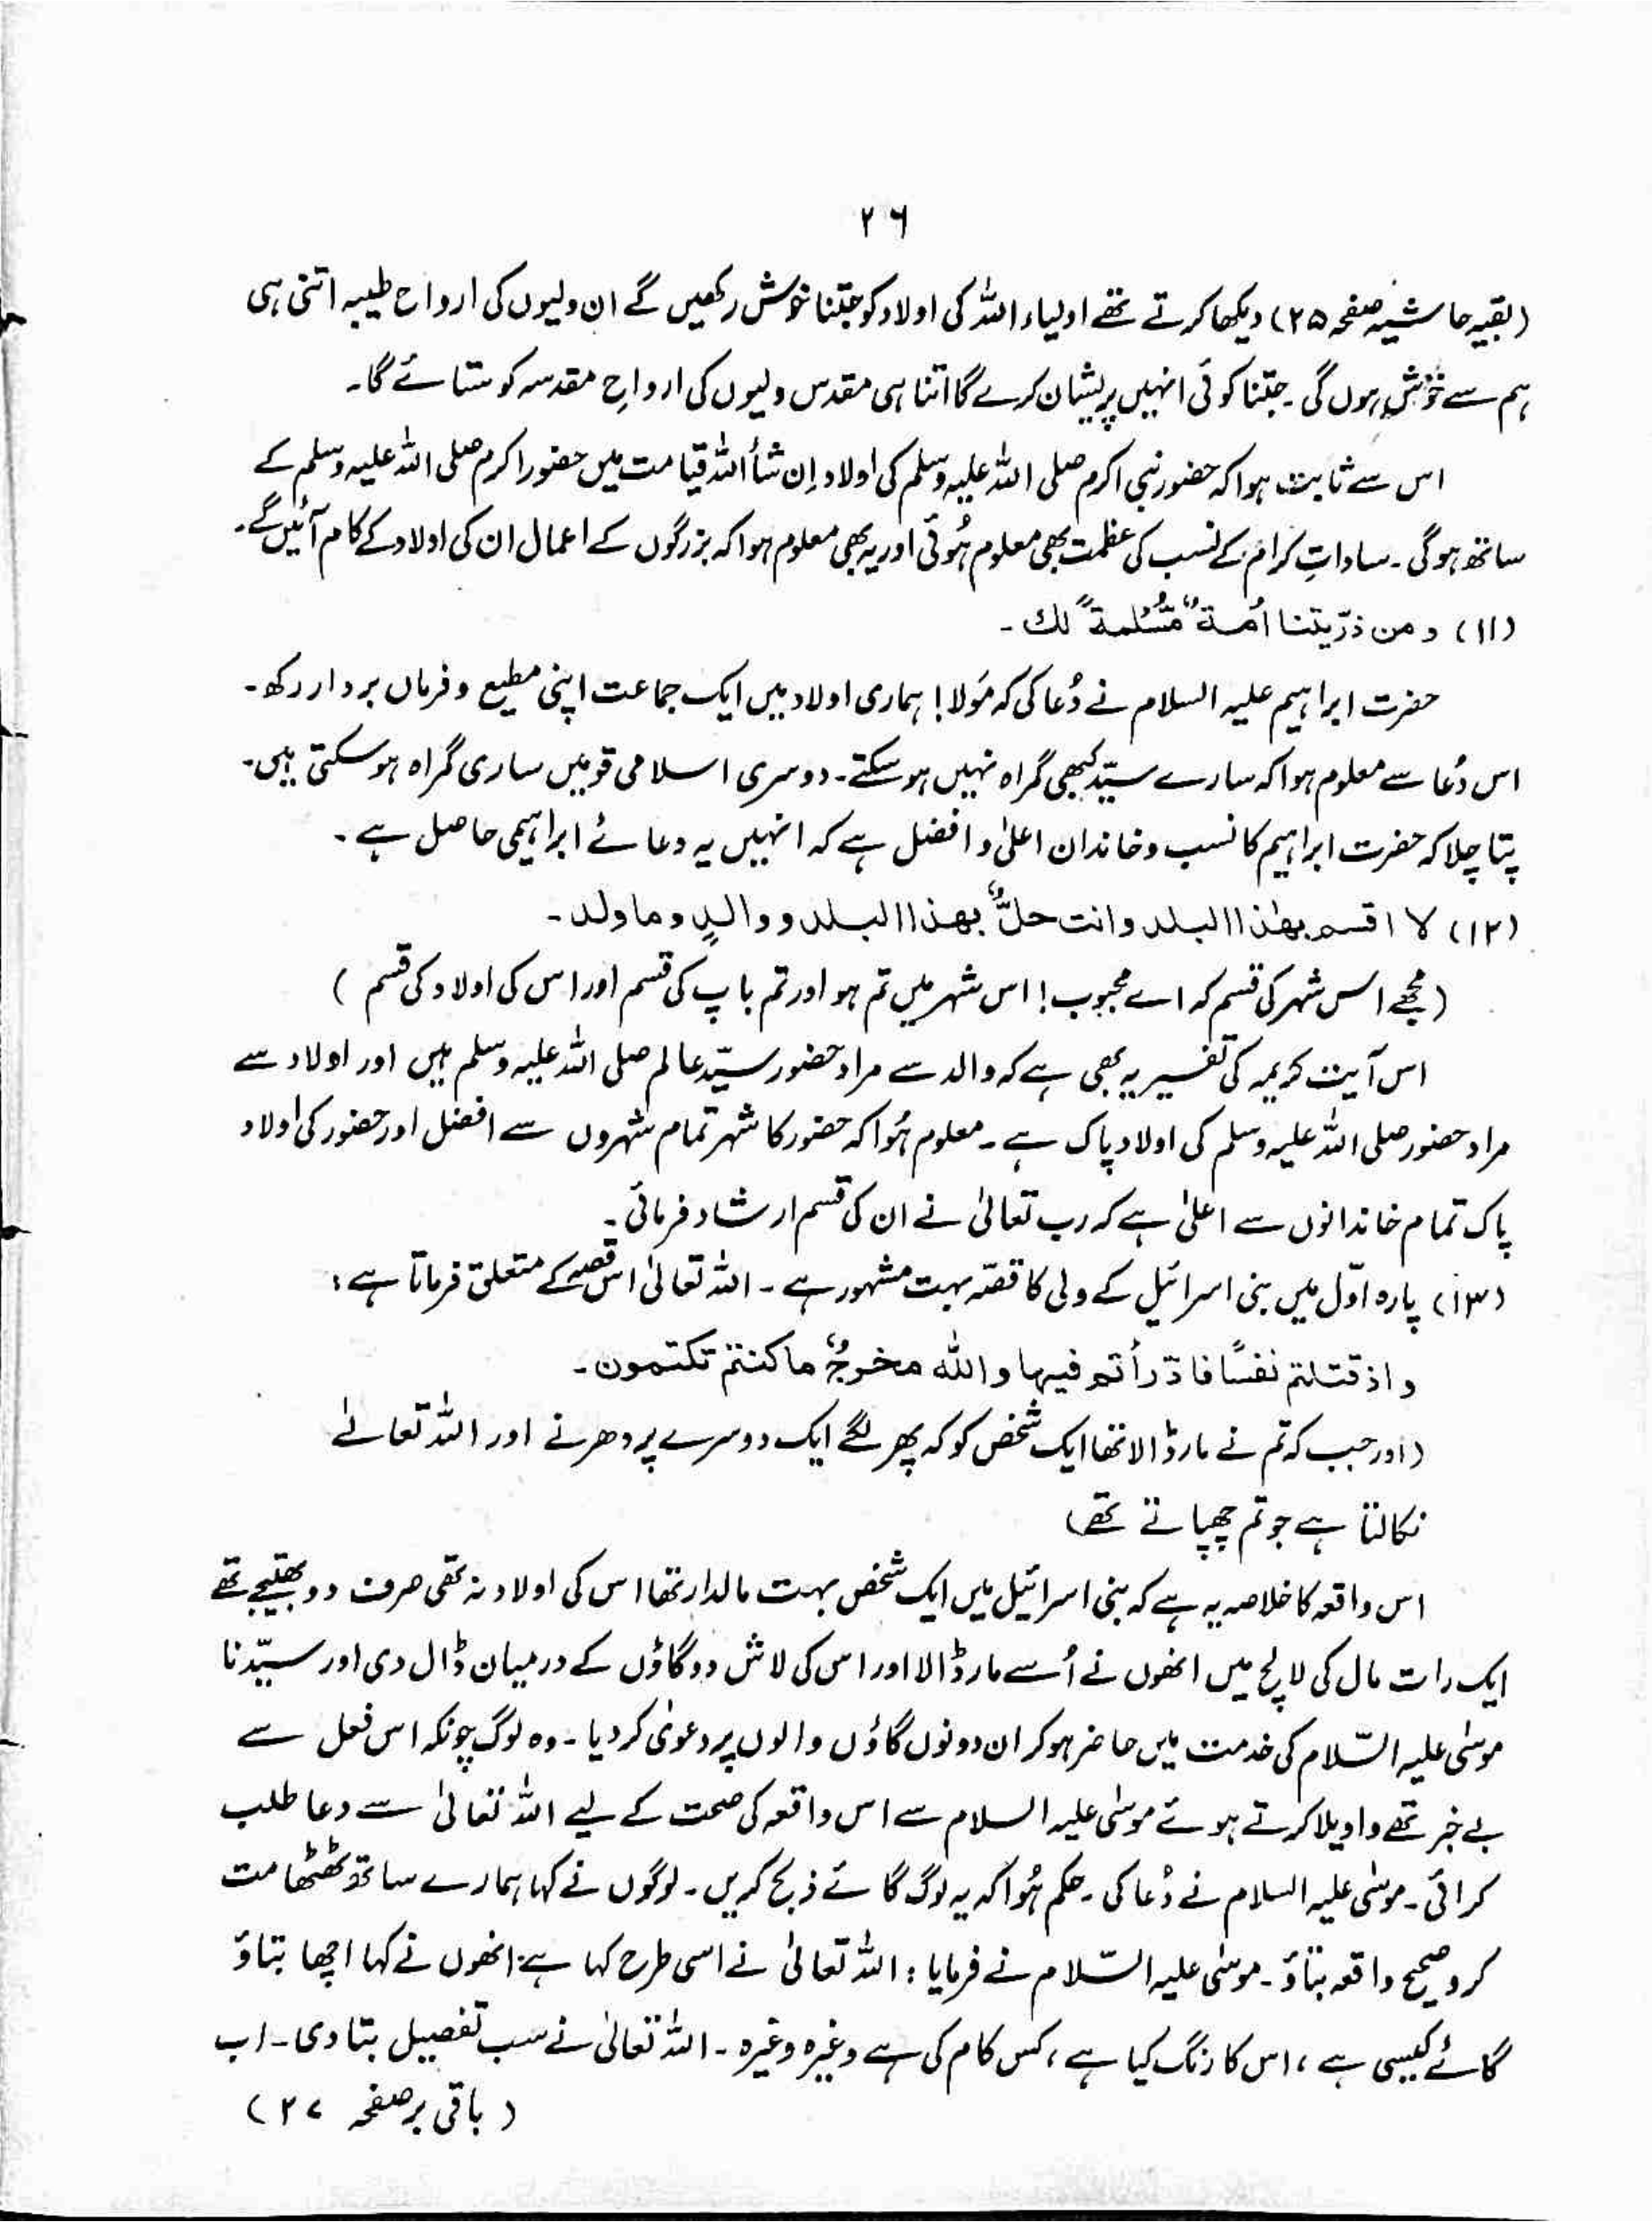 ۲۶
(بقیہ حاشیہ صفحہ ۲۵) دیکھا کرتے تھے اولیاء اللہ کی اولاد کو جتنا خوش رکھیں گے ان ولیوں کی ارواح طیبہ اتنی ہی
ہم سے خوش ہوں گی۔ جتنا کوئی انہیں پریشان کرے گا اتنا ہی مقدس ولیوں کی ارواحِ مقدسہ کو ستائے گا۔
اس سے ثابت ہوا کہ حضور نبی اکرم صلی اللہ علیہ وسلم کی اولاد اِن شأ اللہ قیامت میں حضور اکرم صلی اللہ علیہ وسلم کے
ساتھ ہوگی۔ ساداتِ کرام کے نسب کی عظمت بھی معلوم ہُوئی اور یہ بھی معلوم ہوا کہ بزرگوں کے اعمال ان کی اولاد کے کام آئیں گے۔
(۱۱) ومن ذرّیتنا اُمةً مُّسْلمةً لك۔
حضرت ابراہیم علیہ السلام نے دُعا کی کہ مَولا! ہماری اولاد میں ایک جماعت اپنی مطیع و فرماں بردار رکھ۔
اس دُعا سے معلوم ہوا کہ سارے سیّد کبھی گمراہ نہیں ہوسکتے۔ دوسری اسلامی قومیں ساری گمراہ ہوسکتی ہیں۔
پتا چلا کہ حضرت ابراہیم کا نسب و خاندان اعلیٰ و افضل ہے کہ انہیں یہ دعائے ابراہیمی حاصل ہے۔
(۱۲) لا اقسم بھٰذا البلد وانت حلٌّ بھذا البلد و والدٍ وما ولد۔
(مجھے اس شہر کی قسم کہ اے محبوب! اس شہر میں تم ہو اور تم باپ کی قسم اور اس کی اولاد کی قسم)
اس آیت کریمہ کی تفسیر یہ بھی ہے کہ والد سے مراد حضور سیّد عالم صلی اللہ علیہ وسلم ہیں اور اولاد سے
مراد حضور صلی اللہ علیہ وسلم کی اولاد پاک ہے۔ معلوم ہُوا کہ حضور کا شہر تمام شہروں سے افضل اور حضور کی اولاد
پاک تمام خاندانوں سے اعلیٰ ہے کہ رب تعالیٰ نے ان کی قسم ارشاد فرمائی۔
(۱۳) پارہ اوّل میں بنی اسرائیل کے ولی کا قصّہ بہت مشہور ہے۔ اللہ تعالیٰ اس قصے کے متعلق فرماتا ہے:
واذ قتلتم نفسًا فادّرأتم فیها والله مخرجٌ ما کنتم تکتمون۔
(اور جب کہ تم نے مار ڈالا تھا ایک شخص کو کہ پھر لگے ایک دوسرے پر دھرنے اور اللہ تعالےٰ
نکالتا ہے جو تم چھپاتے تھے)
اس واقعہ کا خلاصہ یہ ہے کہ بنی اسرائیل میں ایک شخص بہت مالدار تھا اس کی اولاد نہ تھی صرف دو بھتیجے تھے
ایک رات مال کی لالچ میں انھوں نے اُسے مار ڈالا اور اس کی لاش دو گاؤں کے درمیان ڈال دی اور سیّدنا
موسٰی علیہ السّلام کی خدمت میں حاضر ہوکر ان دونوں گاؤں والوں پر دعویٰ کردیا۔ وہ لوگ چونکہ اس فعل سے
بے خبر تھے واویلا کرتے ہوئے موسٰی علیہ السلام سے اس واقعہ کی صحت کے لیے اللہ تعالیٰ سے دعا طلب
کرائی۔ موسٰی علیہ السلام نے دُعا کی۔ حکم ہُوا کہ یہ لوگ گائے ذبح کریں۔ لوگوں نے کہا ہمارے ساتھ ٹھٹھا مت
کرو صحیح واقعہ بتاؤ۔ موسٰی علیہ السّلام نے فرمایا: اللہ تعالیٰ نے اسی طرح کہا ہے۔ انھوں نے کہا اچھا بتاؤ
گائے کیسی ہے، اس کا رنگ کیا ہے، کس کام کی ہے وغیرہ وغیرہ۔ اللہ تعالیٰ نے سب تفصیل بتا دی۔ اب
(باقی بر صفحہ ۲۷)